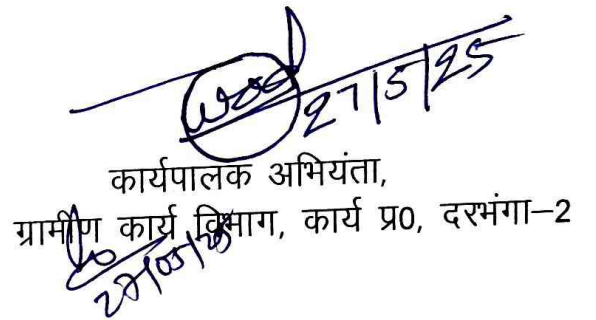 27/5/25
कार्यपालक अभियंता,
ग्रामीण कार्य विभाग, कार्य प्र0, दरभंगा–2
27/05/25